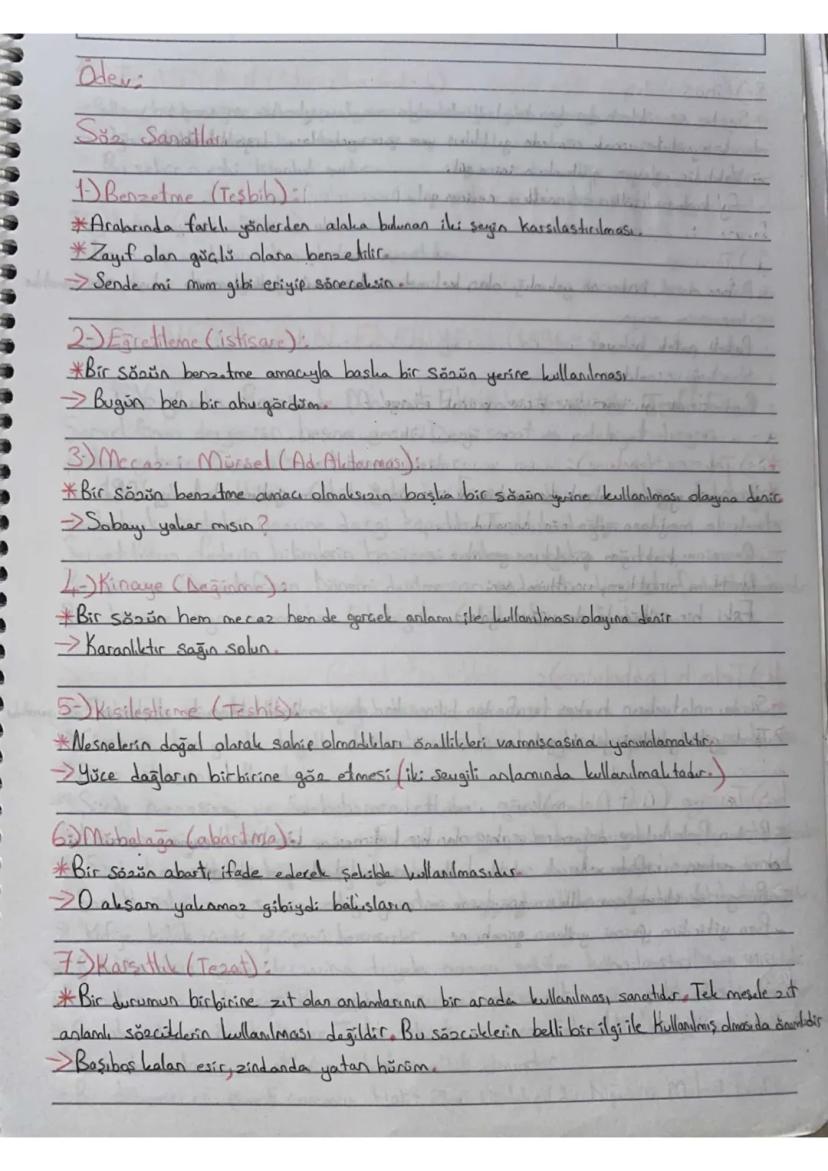 Ödev:
Söz Sanatları
1-) Benzetme (Teşbih):
*Aralarında farklı yönlerden alaka bulunan iki şeyin karşılaştırılması.
*Zayıf olan güçlü olana benzetilir.
→ Sende mi mum gibi eriyip söneceksin.
2-) Eğretileme (istiare):
*Bir sözün benzetme amacıyla başka bir sözün yerine kullanılması
→ Bugün ben bir ahu gördüm.
3-) Mecaz-ı Mürsel (Ad Aktarması):
*Bir sözün benzetme amacı olmaksızın başka bir sözün yerine kullanılması olayına denir
→ Sobayı yakar mısın?
4-) Kinaye (Değinme):
*Bir sözün hem mecaz hem de gerçek anlamı ile kullanılması olayına denir
→ Karanlıktır sağın solun.
5-) Kişileştirme (Teşhis):
*Nesnelerin doğal olarak sahip olmadıkları özellikleri varmışcasına yorumlamaktır.
→ Yüce dağların birbirine göz etmesi (iki sevgili anlamında kullanılmaktadır.)
6-) Mübalağa (abartma):
*Bir sözün abartı ifade ederek şekilde kullanılmasıdır.
→ O akşam yakamoz gibiydi bakışların
7-) Karşıtlık (Tezat):
*Bir durumun birbirine zıt olan anlamlarının bir arada kullanılması sanatıdır. Tek mesele zıt
anlamlı sözcüklerin kullanılması değildir. Bu sözcüklerin belli bir ilgi ile kullanılmış olması da önemlidir
→ Başıboş kalan esir, zindanda yatan hürüm.